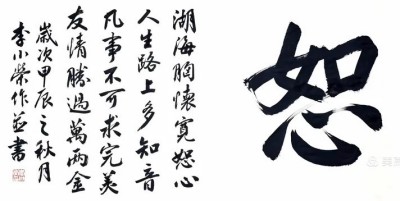 恕
湖海胸懷寬恕心
人生路上多知音
凡事不可求完美
友情勝過萬兩金
歲次甲辰之秋月
李小榮作並書